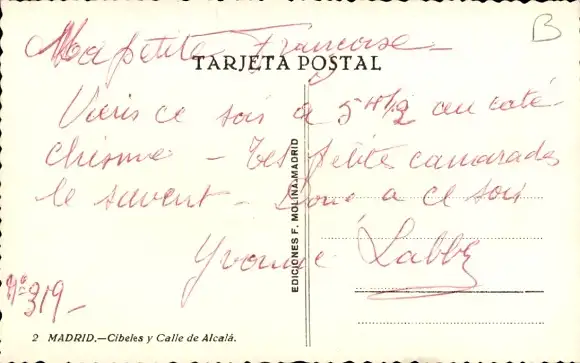 B
Ma petite Françoise -
TARJETA POSTAL
Viens ce soir à 5 H 1/2 au caté
chisme - tes petites camarades
le savent - Donc à ce soir
Yvonne Labbé
Nº 319 -
EDICIONES F. MOLINA.MADRID
2 MADRID.—Cibeles y Calle de Alcalá.